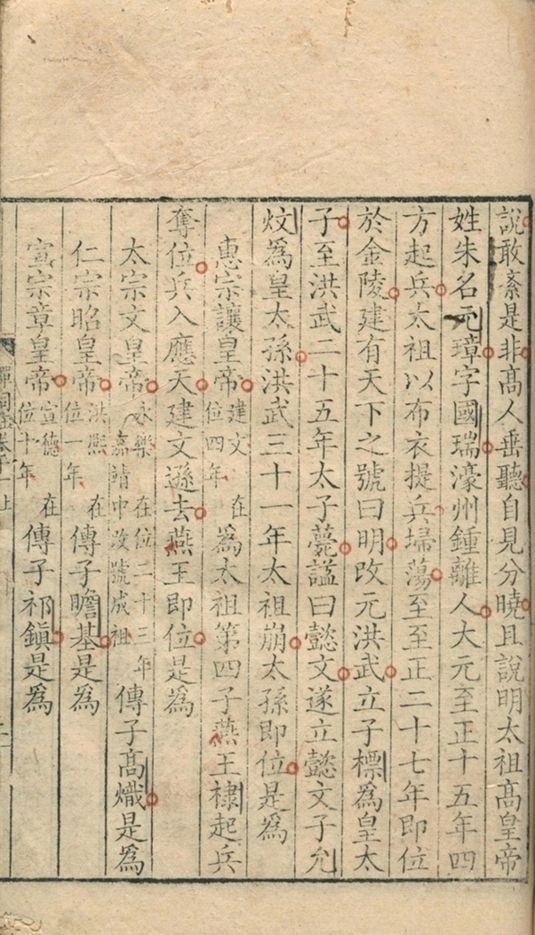 說敢紊是非髙人垂聽自見分曉且說明太祖髙皇帝
姓朱名元璋字國瑞濠州鍾離人大元至正十五年四
方起兵太祖以布衣提兵埽蕩至至正二十七年即位
於金陵建有天下之號曰明改元洪武立子標為皇太
子至洪武二十五年太子薨謚曰懿文遂立懿文子允
炆為皇太孫洪武三十一年太祖崩太孫即位是為
惠宗讓皇帝建文在位四年為太祖第四子燕王棣起兵
奪位兵入應天建文遜去燕王即位是為
太宗文皇帝永樂在位二十三年嘉靖中改號成祖傳子髙熾是為
仁宗昭皇帝洪熙在位一年傳子瞻基是為
宣宗章皇帝宣德在位十年傳子祁鎮是為
彈詞